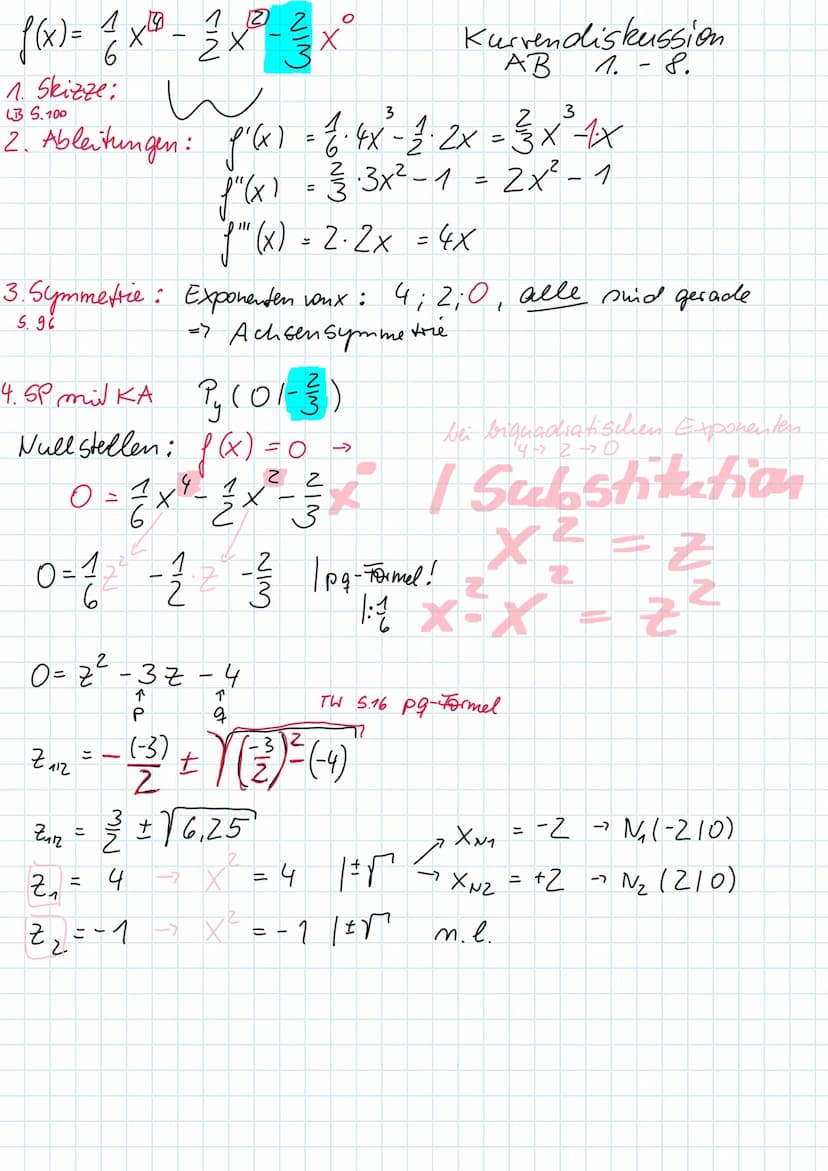 f(x) = 1/6 x^4 - 1/2 x^2 - 2/3 x^0
Kurvendiskussion
AB 1. - 8.
1. Skizze:
LB S.100
2. Ableitungen: f'(x) = 1/6 · 4x^3 - 1/2 · 2x = 2/3 x^3 - 1·x
f''(x) = 2/3 · 3x^2 - 1 = 2x^2 - 1
f'''(x) = 2 · 2x = 4x
3. Symmetrie: Exponenten von x: 4; 2; 0, alle sind gerade
S. 96
=> Achsensymmetrie
4. SP mit KA Py (0 | -2/3)
Nullstellen: f(x) = 0 →
bei biquadratischen Exponenten
4 → 2 → 0
0 = 1/6 x^4 - 1/2 x^2 - 2/3 x^0 | Substitution
x^2 = z
0 = 1/6 z^2 - 1/2 · z - 2/3 | pq-Formel!
|: 1/6
x^2 · x^2 = z^2
0 = z^2 - 3z - 4
↑ ↑
p q
TW S.16 pq-Formel
z1/2 = - (-3)/2 ± √((-3/2)^2 - (-4))
z1/2 = 3/2 ± √6,25
z1 = 4 → x^2 = 4 | ±√
↗ xN1 = -2 → N1 (-2|0)
→ xN2 = +2 → N2 (2|0)
z2 = -1 → x^2 = -1 | ±√ n.l.